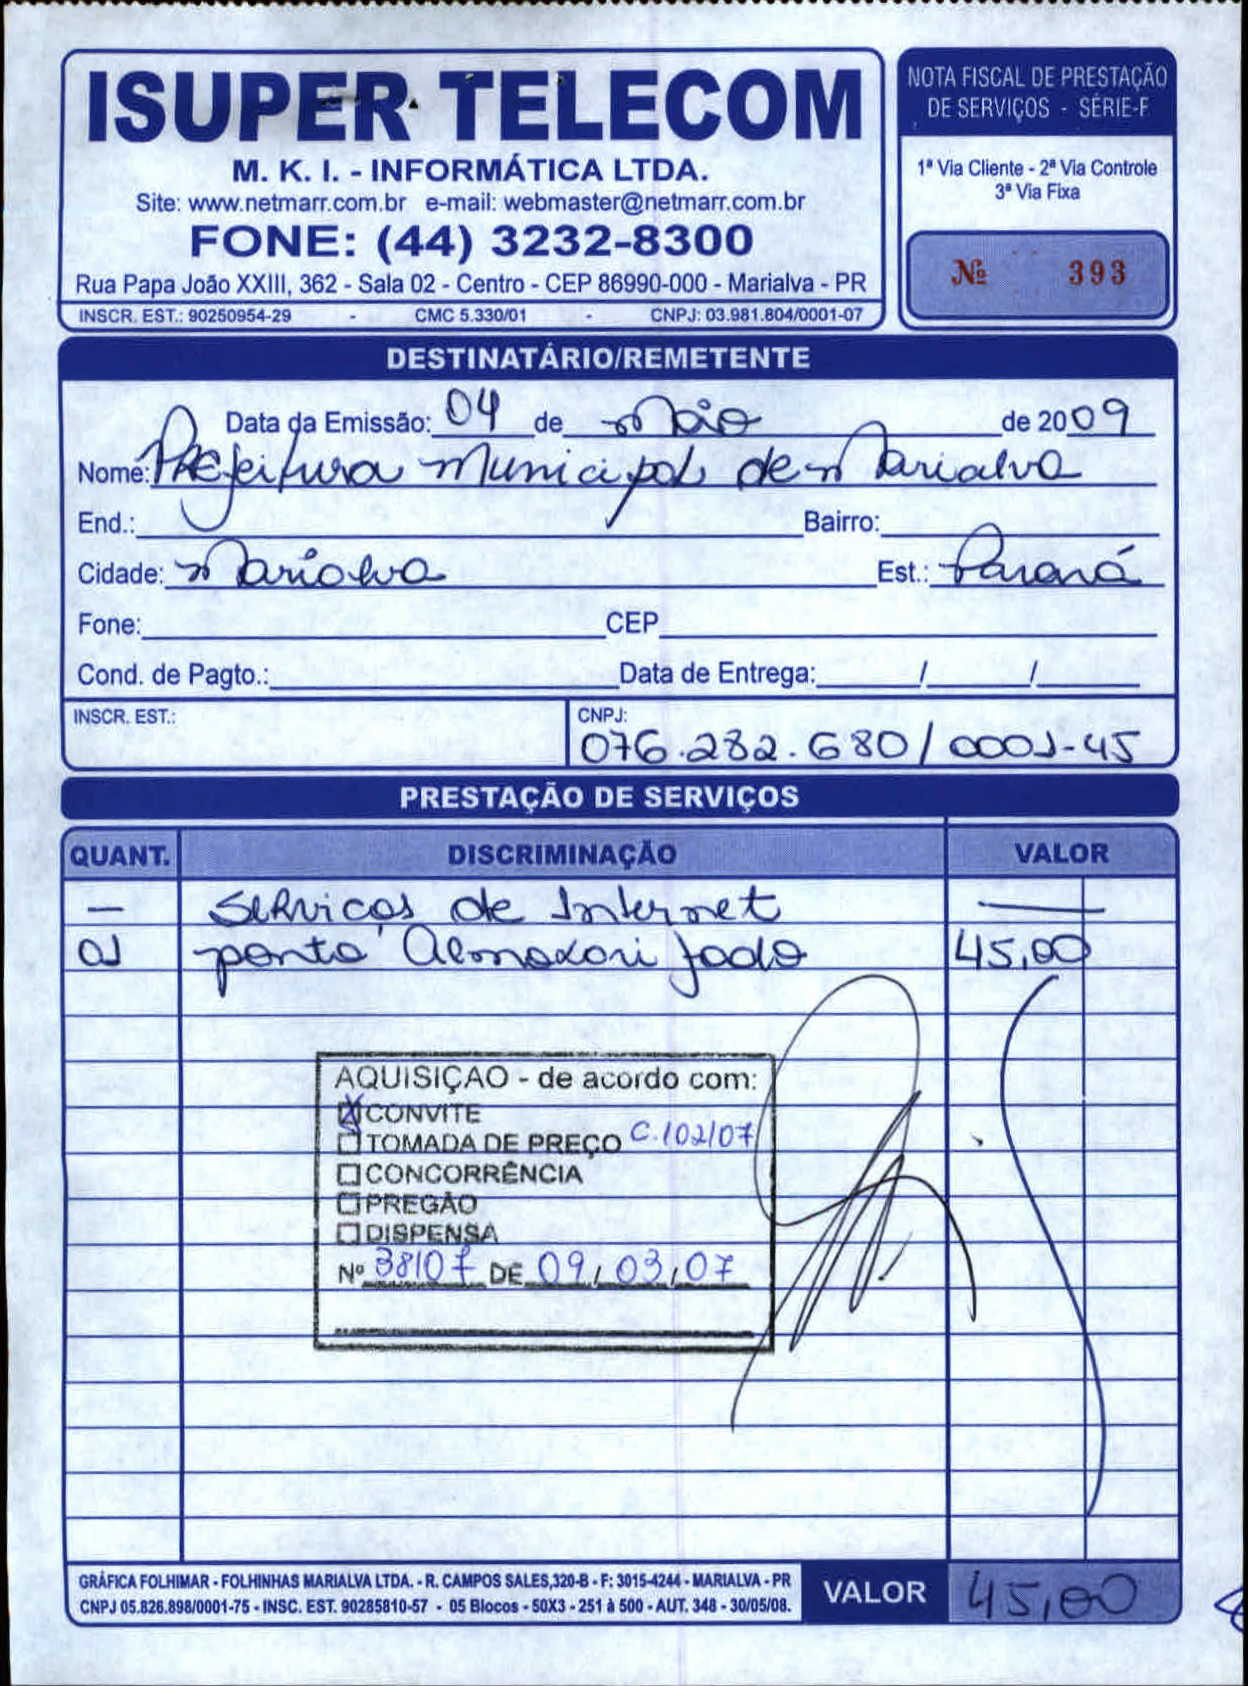 ISUPER TELECOM
M. K. I. - INFORMÁTICA LTDA.
Site: www.netmarr.com.br e-mail: webmaster@netmarr.com.br
FONE: (44) 3232-8300
Rua Papa João XXIII, 362 - Sala 02 - Centro - CEP 86990-000 - Marialva - PR
INSCR. EST.: 90250954-29 - CMC 5.330/01 - CNPJ: 03.981.804/0001-07
NOTA FISCAL DE PRESTAÇÃO
DE SERVIÇOS - SÉRIE-F
1ª Via Cliente - 2ª Via Controle
3ª Via Fixa
Nº 393
DESTINATÁRIO/REMETENTE
Data da Emissão: 04 de Maio de 2009
Nome: Prefeitura Municipal de Marialva
End.: Bairro:
Cidade: Marialva Est.: Paraná
Fone: CEP
Cond. de Pagto.: Data de Entrega: / /
INSCR. EST.: CNPJ:
076.282.680/0001-45
PRESTAÇÃO DE SERVIÇOS
QUANT. DISCRIMINAÇÃO VALOR
— Serviços de Internet —
01 ponto Almoxarifado 45,00
AQUISIÇAO - de acordo com:
CONVITE
TOMADA DE PREÇO C.102/07
CONCORRÊNCIA
PREGÃO
DISPENSA
Nº 38107 DE 09/03/07
GRÁFICA FOLHIMAR - FOLHINHAS MARIALVA LTDA. - R. CAMPOS SALES,320-B - F: 3015-4244 - MARIALVA - PR
CNPJ 05.826.898/0001-75 - INSC. EST. 90285810-57 - 05 Blocos - 50X3 - 251 à 500 - AUT. 348 - 30/05/08.
VALOR 45,00